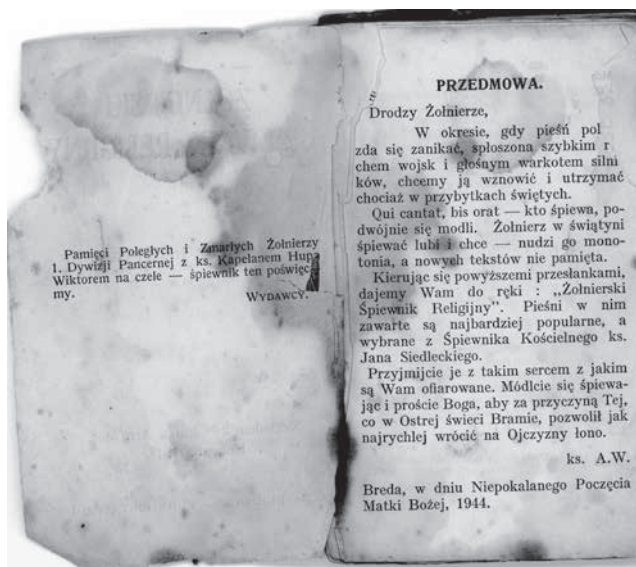 Pamięci Poległych i Zmarłych Żołnierzy
1. Dywizji Pancernej z ks. Kapelanem Hupa
Wiktorem na czele — śpiewnik ten poświęca
my.
WYDAWCY.
PRZEDMOWA.
Drodzy Żołnierze,
W okresie, gdy pieśń pol
zda się zanikać, spłoszona szybkim r
chem wojsk i głośnym warkotem silni
ków, chcemy ją wznowić i utrzymać
chociaż w przybytkach świętych.
Qui cantat, bis orat — kto śpiewa, po-
dwójnie się modli. Żołnierz w świątyni
śpiewać lubi i chce — nudzi go mono-
tonia, a nowych tekstów nie pamięta.
Kierując się powyższemi przesłankami,
dajemy Wam do ręki : „Żołnierski
Śpiewnik Religijny”. Pieśni w nim
zawarte są najbardziej popularne, a
wybrane z Śpiewnika Kościelnego ks.
Jana Siedleckiego.
Przyjmijcie je z takim sercem z jakim
są Wam ofiarowane. Módlcie się śpiewa-
jąc i proście Boga, aby za przyczyną Tej,
co w Ostrej świeci Bramie, pozwolił jak
najrychlej wrócić na Ojczyzny łono.
ks. A.W.
Breda, w dniu Niepokalanego Poczęcia
Matki Bożej, 1944.